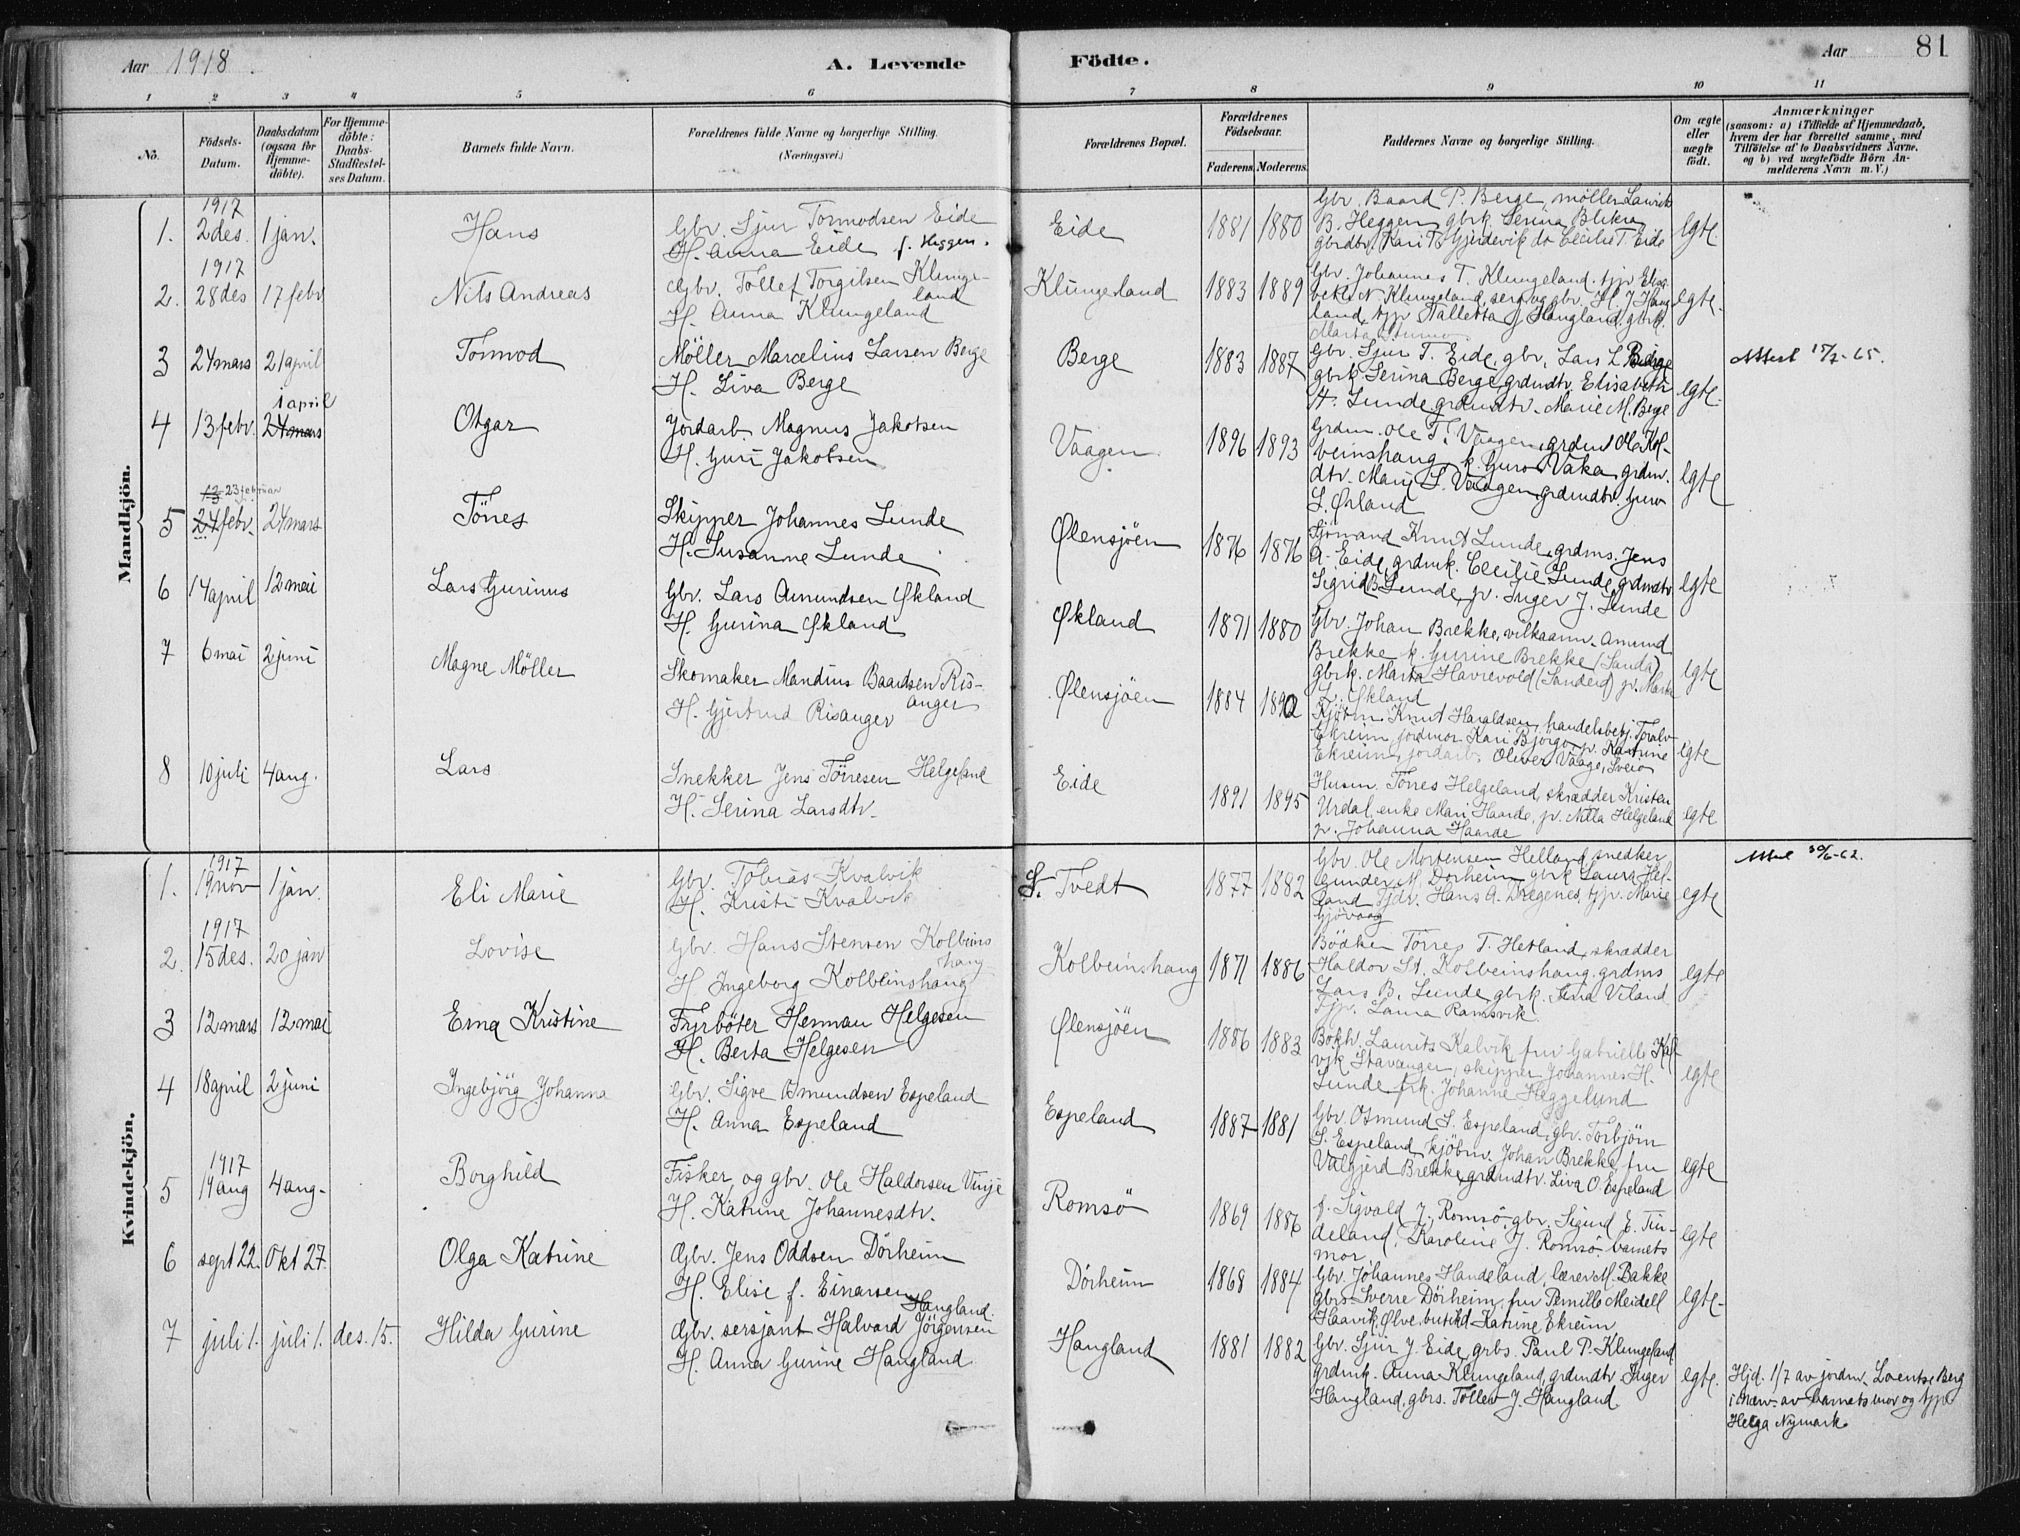 Aar 1918. A. Levende Födte. Aar 81
1 2 3 4 5 6 7 8 9 10 11
No.
Födsels-Datum.
Daabsdatum (ogsaa for Hjemme-döbte).
For Hjemme-döbte: Daabs-Stadfæstel-ses Datum.
Barnets fulde Navn.
Forældrenes fulde Navne og borgerlige Stilling.
(Næringsvei.)
Forældrenes Bopæl.
Forældrenes Födselsaar.
Faderens. Moderens.
Faddernes Navne og borgerlige Stilling.
Om ægte eller uægte födt.
Anmærkninger
(saasom: a) i Tilfælde af Hjemmedaab,
hvem der har forrettet samme, med
Tilföielse af to Daabsvidners Navne.
og b) ved uægtefödte Börn An-
melderens Navn m.V.)
Mandkjön.
1. 1917 2 des. 1 jan. Hans
Gbr. Sjur Tormodsen Eide
H. Anna Eide f. Heggen.
Eide 1881 1880
Gbr. Baard P. Berge, möller Laurits
B. Heggen gbrk Serina Blikra
gbrdtr. Kari T. Gjerdevik do Cecilie T. Eide
egte.
2. 1917 28 des 17 febr Nils Andreas
Gbr. Tollef Torgilsen Klunge-
land
H. Anna Klungeland
Klungeland 1883 1889
Gbr. Johannes T. Klungeland. tjp. Elisa-
bet N Klungeland, serg og gbr. H. J. Haug-
land, tjp Valletta J Haugland, gbrk.
Marta
egte.
3 24 mars 21 april Tormod
Möller Marcelius Larsen Berge
H. Liva Berge
Berge 1883 1887
Gbr. Sjur T. Eide, gbr. Lars L Berge
gbrk Serina Berge grdmdtr. Elisabeth
H. Lunde grdmdtr. Marie M. Berge
egte.
Attest 15/2-65.
4 13 febr. 1 april 24 mars Otgar
Jordarb. Magnus Jakobsen
H. Guri Jakobsen
Vaagen 1896 1893
Grdm. Ole T. Vaagen, grdm Ole Kol-
beinshaug k. Guro Vaka, grdm.
dtr. Mari S. Vaagen, grdmdtr. Guro
L. Ørland
egte
5 13 23 februar 24 febr. 24 mars Tönes
Skipper Johannes Lunde
H. Susanne Lunde
Ølensjöen 1876 1876
Sjömand Knut Lunde, grdms. Jens
A. Eide, grdmk. Cecilie Lunde grdmdtr
Sigrid B. Lunde, p. Inger J. Lunde
egte
6 14 april 12 mai Lars Gurinus
Gbr. Lars Amundsen Økland
H. Gurina Økland
Økland 1871 1880
Gbr. Johan Brekke, Amund
Brekke k. Gurine Brekke (Sanda)
Gbrk. Marta Havrevold (Sandeid) p. Marta
L. Økland
egte
7 6 mai 2 juni Magne Möller
Skomaker Mandius Baardsen Ris-
anger
H. Gjertrud Risanger
Ølensjöen 1884 1890
Kjöbm. Knut Haraldsen, handelsbetj. Toralv
Ekreim, jordmor Kari Bjorge p. Katrine
Ekreim, jordarb. Oliver Vaage, Sveio
egte
8 10 juli 4 aug. Lars
Snekker Jens Törresen Helgeland
H. Serina Larsdtr.
Eide 1891 1895
Husm. Tönes Helgeland, skrædder Kristen
Urdal, enke Mari Haarde, p. Nilla Helgeland
p. Johanna Haarde
egte
Kvindekjön.
1. 1917 19 nov 1 jan. Eli Marie
Gbr. Tobias Kvalvik
H. Kristi Kvalvik
S. Tvedt 1877 1882
Gbr. Ole Mortensen Helland, snedker
Gunder M. Dörheim gbrk Laura Hel-
land Tjdr. Hans A. Dregenes, tjp. Marie
Gjövaag
egte
Attest 30/6-62.
2. 1917 15 des. 20 jan Lovise
Gbr. Hans Stensen Kolbeins
haug
H Ingeborg Kolbeinshaug
Kolbeinshaug 1871 1886
Bödker Törres T. Hetland, skrædder
Haldor St. Kolbeinshaug, grdms
Lars B. Lunde, gbrk. Sina Veland
Tjp. Laura Ramsvik.
egte
3 12 mars 12 mai Erna Kristine
Fyrböter Herman Helgesen
H. Berta Helgesen
Ølensjöen 1886 1883
Bokh. Laurits Kalvik, fru Gabrielle Kal-
vik Stavanger, skipper Johannes H.
Lunde frk. Johanne Heggelund
egte
4 18 april 2 juni Ingebjörg Johanna
Gbr. Sigve Osmundsen Espeland
H. Anna Espeland
Espeland 1887 1881
Gbr. Osmund S. Espeland, gbr. Torbjörn
S. Espeland, kjöbm. Johan Brekke, fru
Valgjerd Brekke, grdmdtr. Liva O. Espeland
egte
5 1917 14 aug 4 aug. Borghild
Fisker og gbr. Ole Haldorsen Vinje
H. Katrine Johannesdtr.
Romsö 1869 1886
f. Sigvald J. Romsö, gbr. Sigurd E. Tin-
deland, Karoline J. Romsö barnets
mor
egte
6 sept 22. Okt 27. Olga Katrine
Gbr. Jens Oddsen Dörheim
H. Elise f. Einarsen
Dörheim 1868 1884
Gbr. Johannes Handeland, lærer M. Bakke
Gbrs. Sverre Dörheim, fru Pernille Meidell
Haavik Ølve. butikd Katrine Ekreim
egte.
7 juli 1. juli 1. des. 15. Hilda Gurine
Haugland.
Gbr. sersjant Halvard Jörgensen
H. Anna Gurine Haugland
Haugland 1881 1882
Gbr. Sjur J. Eide, grbs. Paul P. Klungeland
grdmk. Anna Klungeland, grdmdtr. Inger
Haugland, gbrs. Tollev J. Haugland
egte.
Hjd. 1/7 av jordm. Loentse Berg
i nærv. av barnets mor og tjp
Helga Nymark